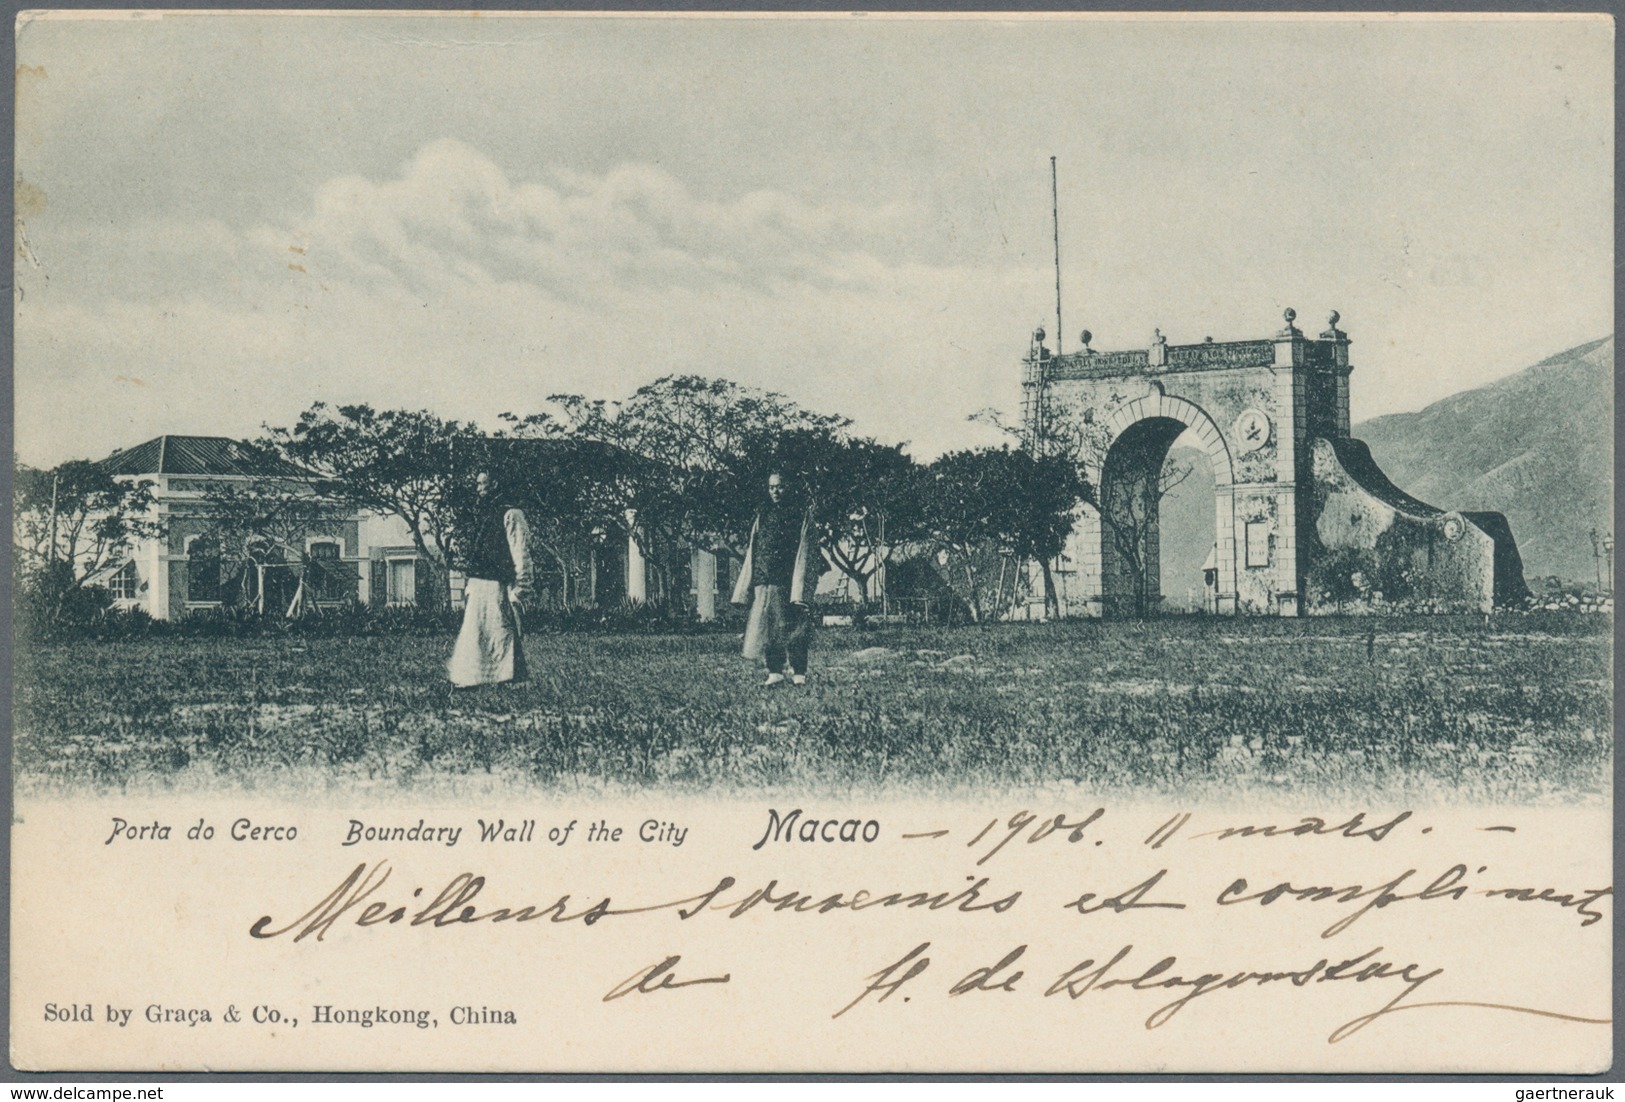 Porta do Cerco Boundary Wall of the City Macao — 1906. 11 mars. —
Meilleurs souvenirs et compliments
de H. de
Sold by Graça & Co., Hongkong, China
gaertnerauk @ www.delcampe.net